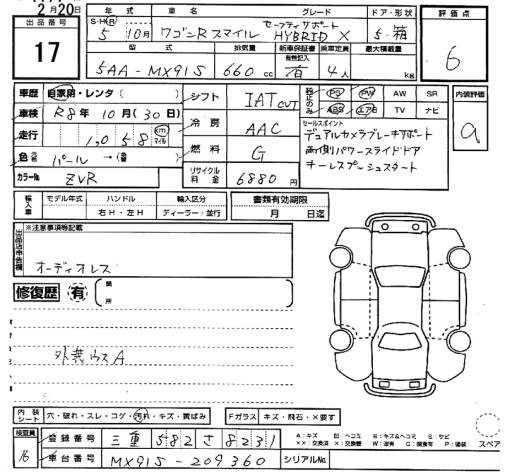 2月20日
出品番号
17
年式 車名 グレード ドア・形状
S・H・R 5年 10月 ワゴンRスマイル セーフティサポート HYBRID X 5 箱
型式 排気量 新車保証書 乗車定員 最大積載量
5AA-MX91S 660cc 有無記入 有 4人 kg
評価点
6
車歴 自家用・レンタ( )
車検 R8年 10月(30日)
走行 1,058 km マイル
色 パール→( )
カラーNo ZVR
シフト IAT CVT
冷房 AAC
燃料 G
リサイクル料金 6880円
純正のみ PS PW AW SR
ABS エアB TV ナビ
セールスポイント
デュアルカメラブレーキサポート
両側パワースライドドア
キーレスプッシュスタート
内装評価
a
輸入車 モデル年式 ハンドル 輸入区分
年 右H・左H ディーラー・並行
書類有効期限
月 日迄
出品店申告欄
※注意事項等記載
オーディオレス
修復歴 有 箇所
外装ウスA
内装シート 穴・破れ・スレ・コゲ・汚れ・キズ・黄ばみ
Fガラス キズ・飛石・X要す
検査員
16
登録番号 三重 582 さ 8231
車台番号 MX91S-209360 シリアルNo.
A：キズ U：ヘコミ B：キズ&ヘコミ S：サビ
XX：交換済 X：要交換 W：補修 C：腐食 P：塗装
スペア